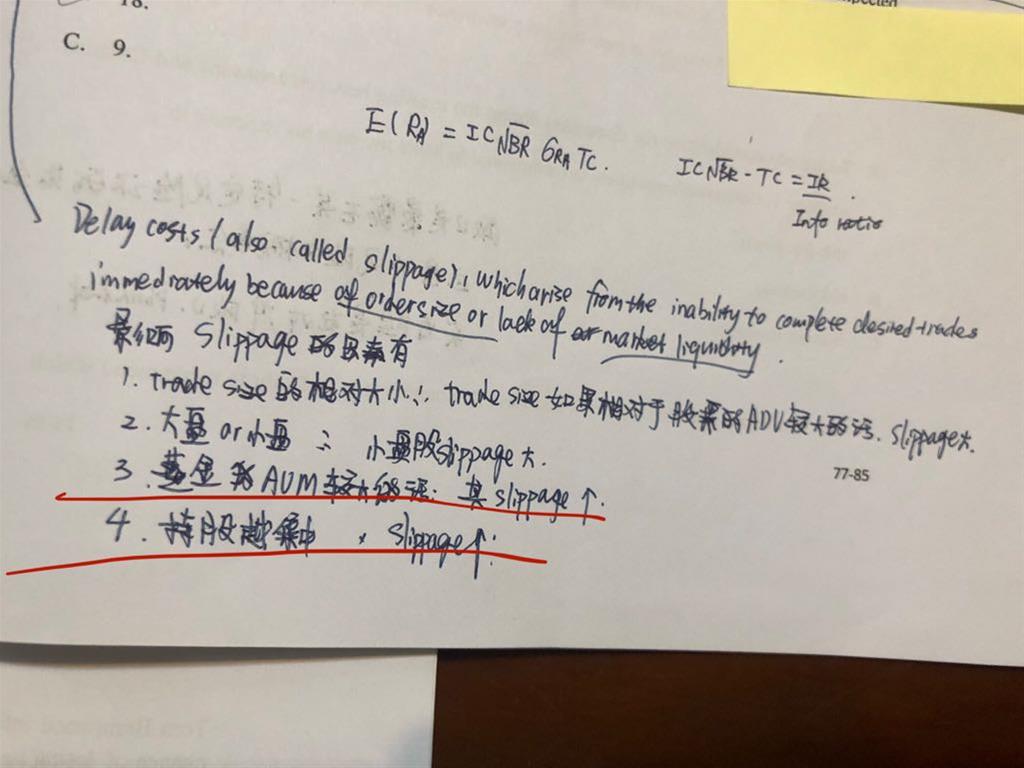 18.
C. 9.
E(RA) = IC√BR σRA TC.
IC√BR · TC = IR.
Info ratio
Delay costs (also called slippage), which arise from the inability to complete desired trades
immediately because of order size or lack of market liquidity.
影响 Slippage 的因素有
1. trade size 的相对大小: trade size 如果相对于股票的ADV较大的话. slippage大.
2. 大盘 or 小盘: 小盘股slippage大.
3. 基金的 AUM 较大的话, 其 slippage↑.
4. 持股越集中, slippage↑.
77-85